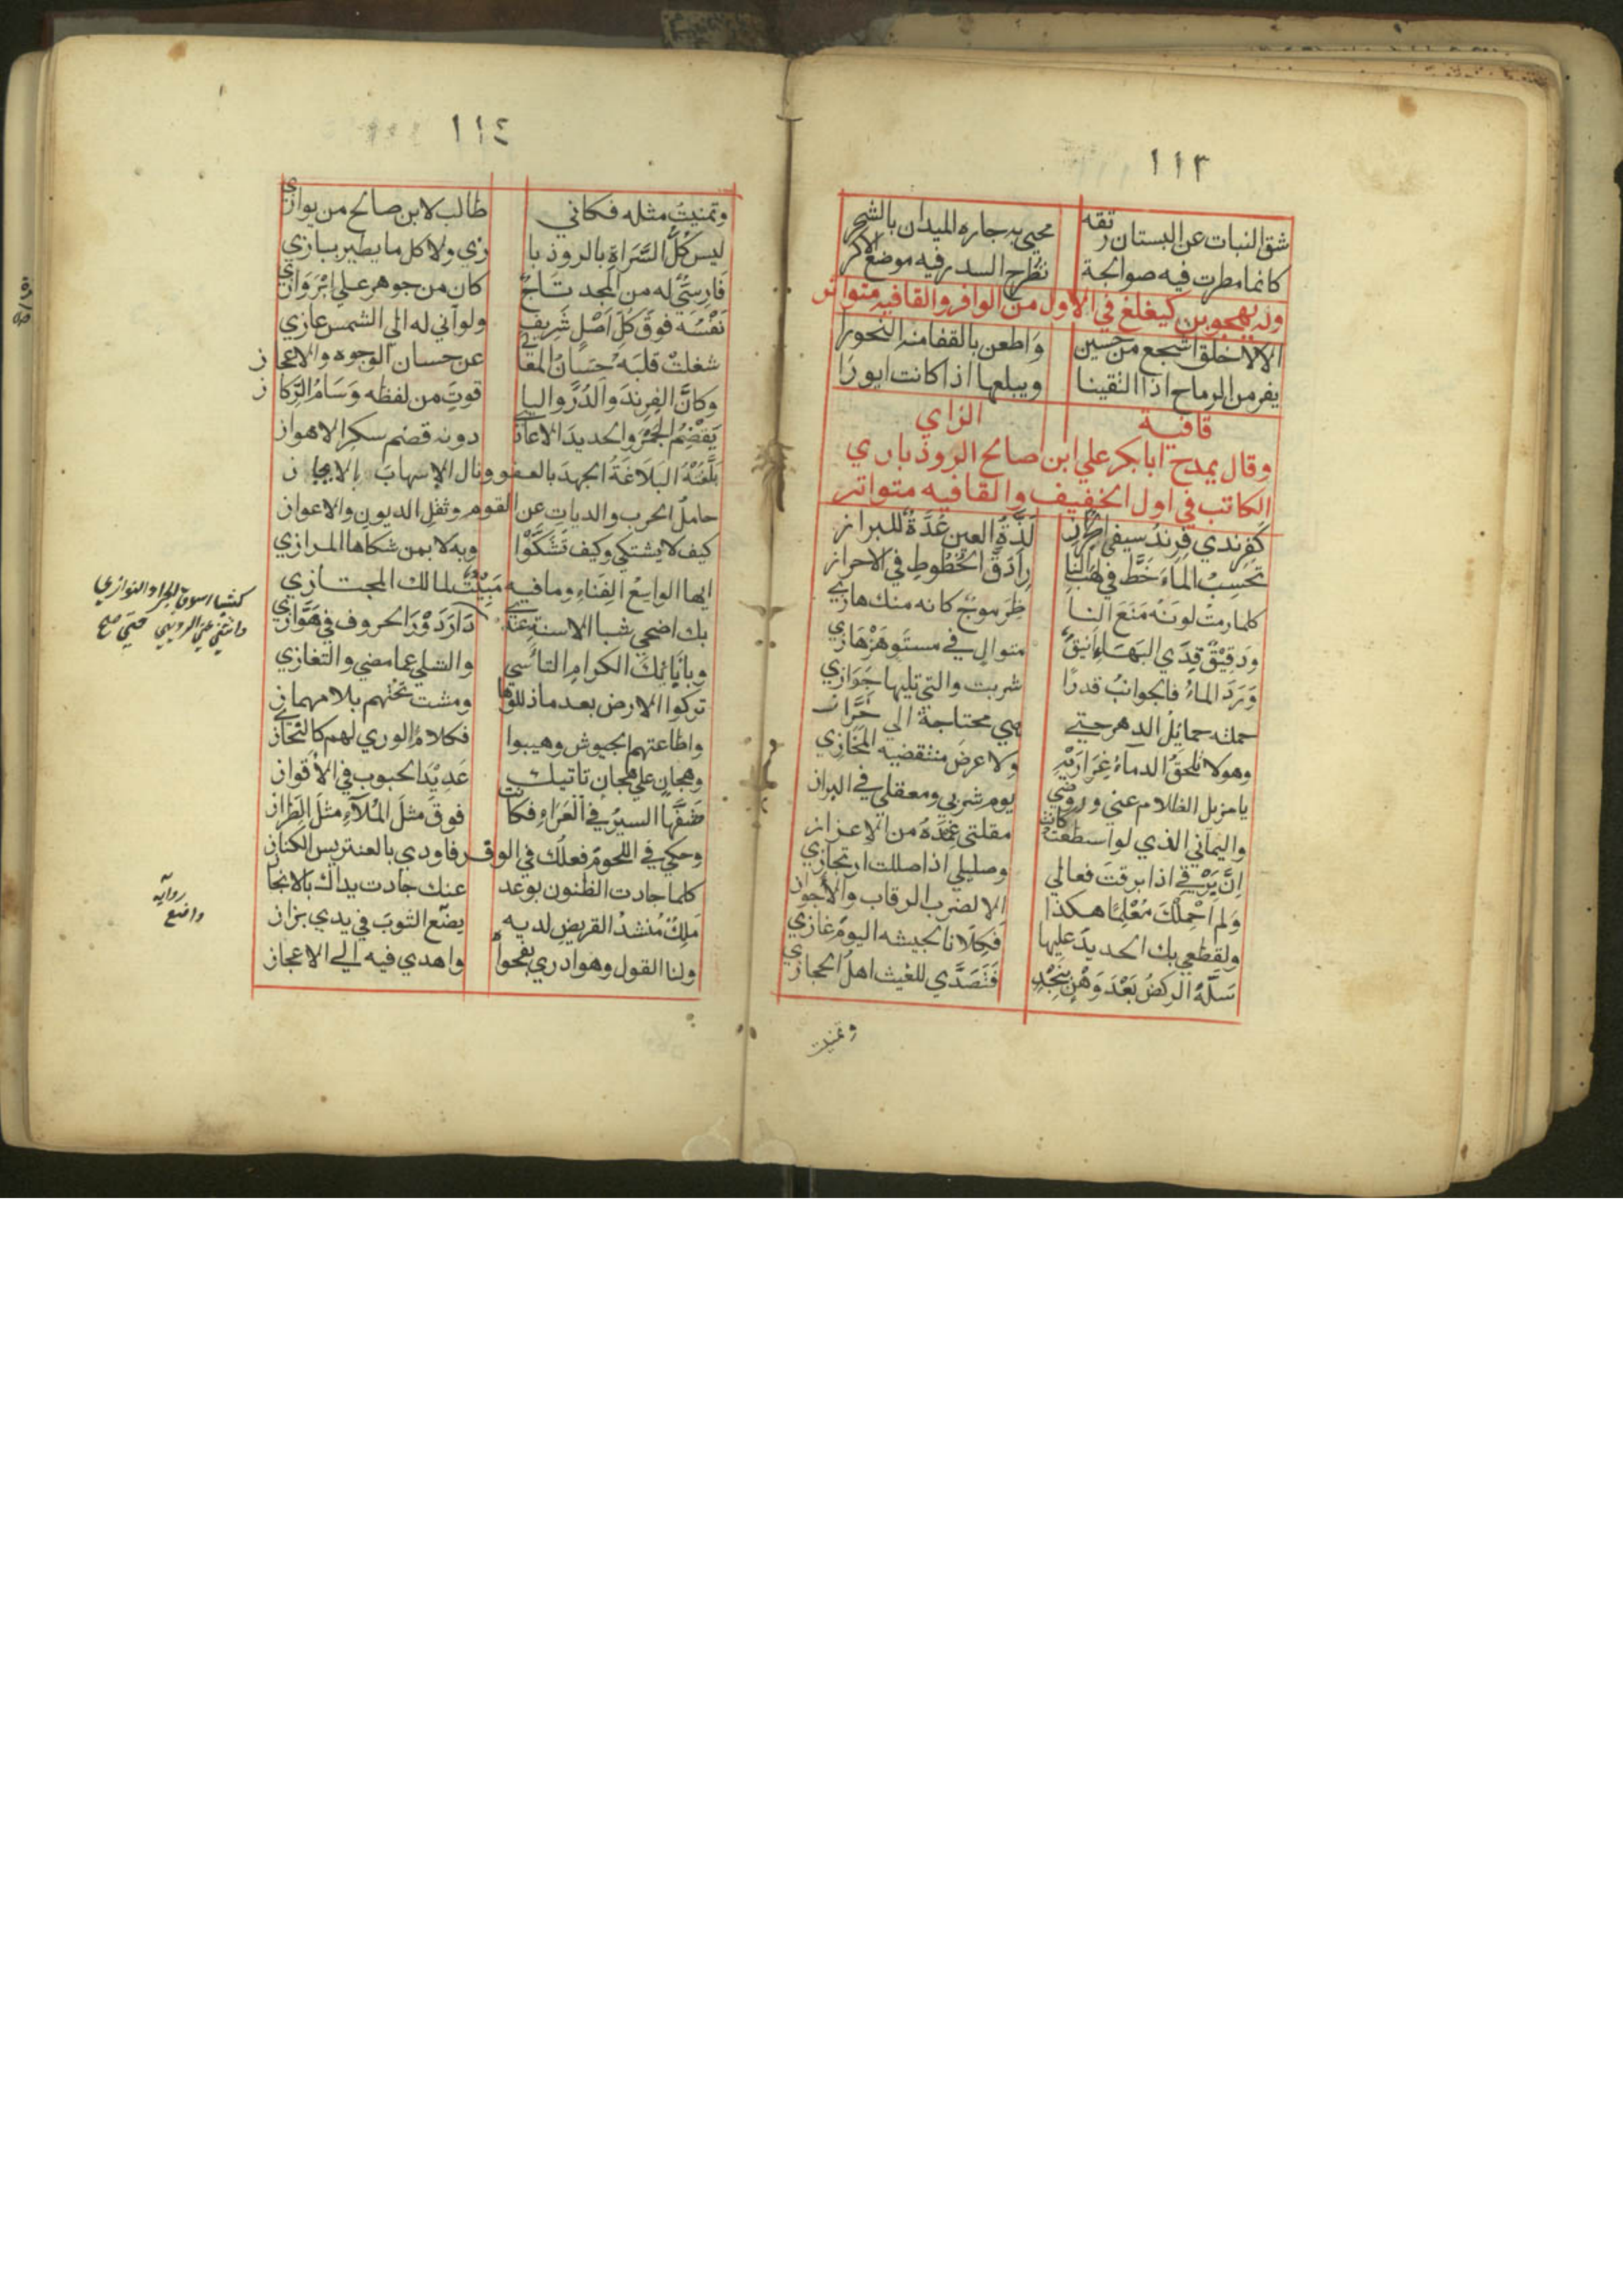 ١١٣
شق النبات عن البستان رتقه محيي به جاره الميدان بالشجر
كانما مطرت فيه صوالجة تطرح السدر فيه موضع الاكر
وله يهجو بن كيغلغ في الاول من الوافر والقافيه متواتر
الا لا خلق اشجع من حسين واطعن بالقفا منه النحورا
يفر من الرماح اذا التقينا ويبلعها اذا كانت ايورًا
قافية الزاي
وقال يمدح ابا بكر علي ابن صالح الروذباري
الكاتب في اول الخفيف والقافيه متواتر
كَفِرِندي فِرِندُ سيفي الجُراز لَذَّةُ العين عُدَّةٌ للبراز
تحسِبُ الماءَ خَطَّ في لهب النا رِ ادَقَّ الخُطُوطِ في الاحراز
كلما رمتُ لونَهُ مَنَعَ النا ظِرَ موجٌ كانه منك هازي
ودَقِيْقٌ قِدَي الهَبَاءِ انيقٌ متوالٍ في مستَوٍ هَزْهَازي
وَرَدَ الماءُ فالجوانبُ قدرًا شربت والتي تليها جَوَازي
حملته حمايلُ الدهر حتي هي محتاجة الي خرّاز
وهو لا تلحقُ الدماءُ غِرَارَيْهِ ولا عرضَ منتضيه المخَازي
يا مزيل الظلام عني وروضي يوم شربي ومعقلي في البراز
واليماني الذي لو اسطعت كانت مقلتي غِمْدَهُ من الإعزاز
اِنَّ بَرْقي اذا برقتَ فعالي وصليلي اذا صللت ارتجازي
وَلم اَحْمِلْكَ مُعْلِمًا هكذا الا لضرب الرقاب والأجواز
ولقطعي بك الحديدَ عليها فَكِلَانا لجيشه اليومَ غازي
سَلَّهُ الركضُ بَعْدَ وَهْنٍ بِنَجْدٍ فَتَصَدَّي للغيث اهلُ الحجاز
وتمنيت
١١٤
وتمنيتُ مثله فكاني طالب لابن صالح من يوازي
ليس كُلُّ السَّرَاةِ بالروذبا زي ولا كل ما يطير ببازي
فَارِسيٌّ له من المجد تَاجٌ كان من جوهر علي ابْرَوَازي
نَفْسُه فوقَ كلِّ اَصْلٍ شَرِيفٍ ولو آني له الي الشمس عازي
شغلتْ قلبَه حِسَانُ المعَالي عن حسان الوجوه والاعجاز
وكانَّ الفِرِندَ والدُرَّ واليا قوتَ من لفظه وَسَامُ الرِّكاز
يَقْضِمُ الجَمْرَ والحديدَ الاعادي دونه قضمَ سكر الاهواز
بَلَّغَتْهُ البَلَاغَةُ الجهدَ بالعفو ونال الإسهابَ بالايجاز
حاملُ الحرب والدياتِ عن القوم وثقل الديون والاعواز
كيف لا يشتكي وكيف تَشَكَّوْا وبه لا بمن شكاها المرازي
ايها الواسِعُ الفِنَاءِ وما فيه مَبِيْتٌ لمالك المجتازي
بك اضحي شبا الاسنة عندي دَارَ دَوْرَ الحروف في هَوَّازي
كشبا اسوق الجراد النوازي
وانثني عني الرديني حتي صح
وبآبائك الكرام التأسي والتسلي عما مضي والتغازي
تركوا الارض بعد ما ذللوها ومشت تحتهم بلا مهماز
واطاعتهم الجيوش وهيبوا فكلامُ الوري لهم كالنُّحاز
وهجانٍ علي هجانٍ تاتيك عَدِيْدَ الحبوب في الأقواز
صَفَّهَا السيرُ في العَرَاءِ فكانت فوقَ مثلَ المُلآءِ مثلَ الطِّراز
وحكي في اللحومِ فعلُك في الوفر فاودي بالعنتريس الكناز
كلما جادت الظنون بوعد عنك جادت يداك بالانجاز
مَلِكٌ مُنشدُ القريضِ لديه يضَع الثوبَ في يدي بزاز
روايه
واضع
ولنا القول وهو ادري بفحواه واهدي فيه الي الاعجاز